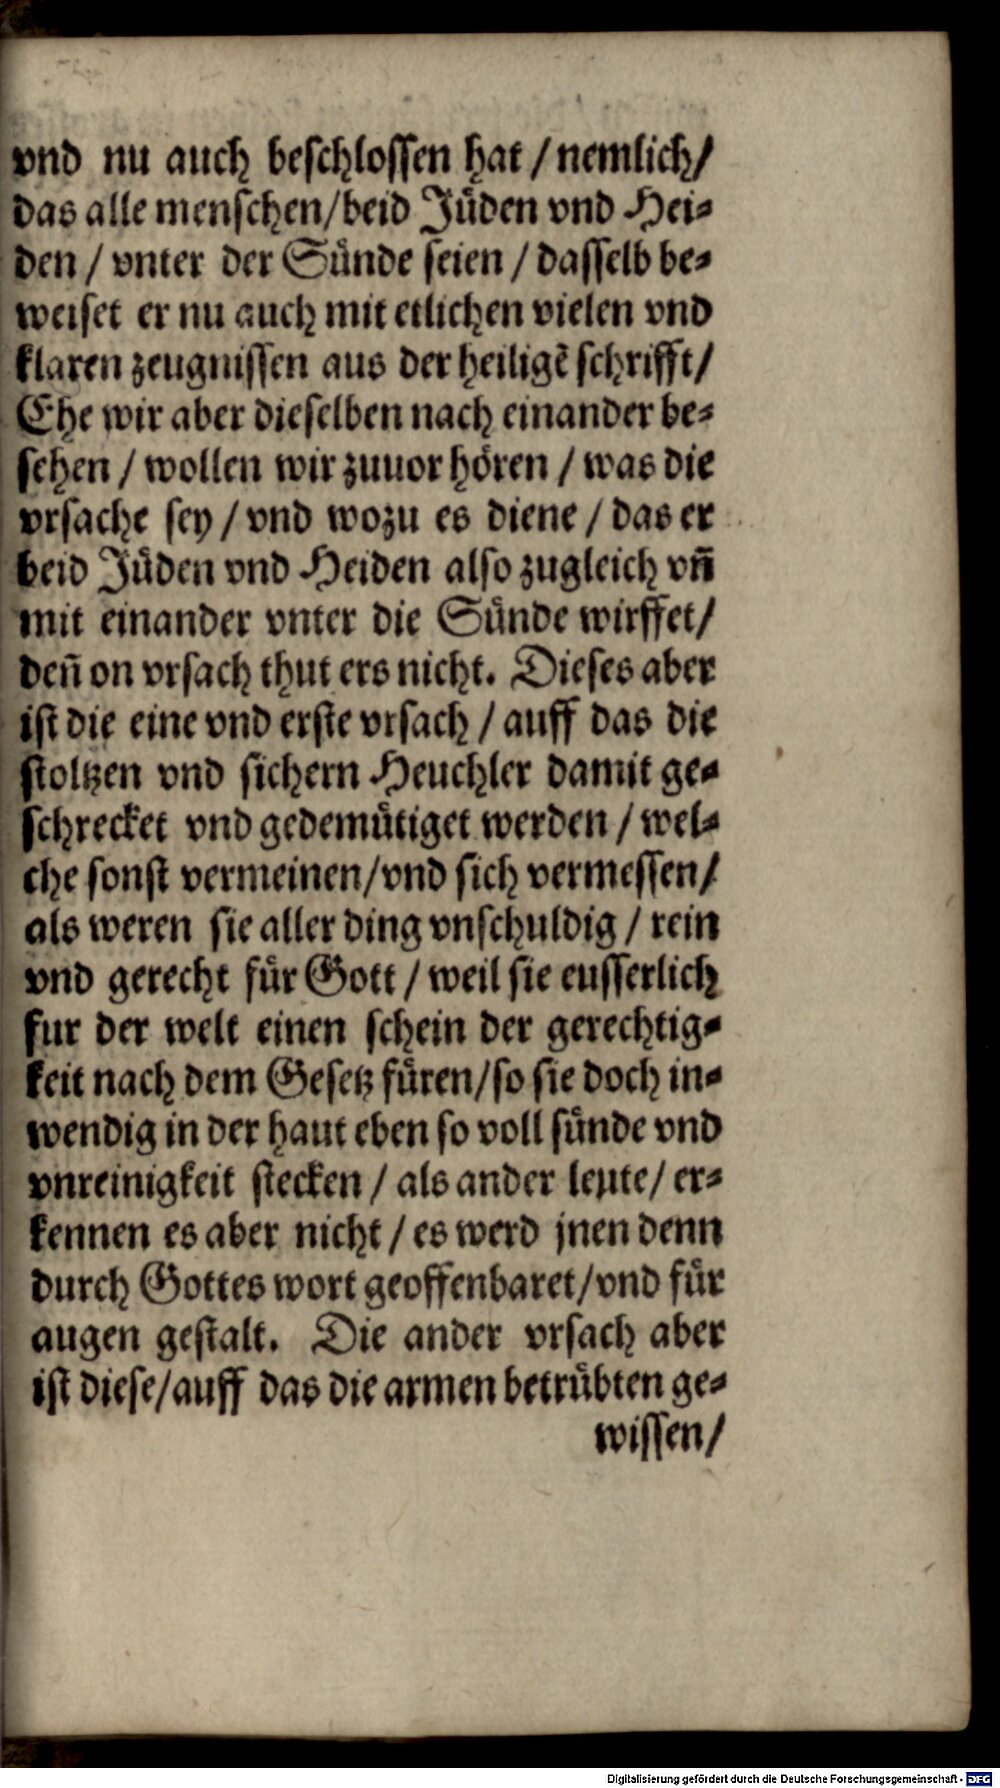 vnd nu auch beschlossen hat / nemlich/
das alle menschen/beid Jüden vnd Hei⸗
den / vnter der Sünde seien / dasselb be⸗
weiset er nu auch mit etlichen vielen vnd
klaren zeugnissen aus der heiligẽ schrifft/
Ehe wir aber dieselben nach einander be⸗
sehen / wollen wir zuuor hören / was die
vrsache sey / vnd wozu es diene / das er
beid Jüden vnd Heiden also zugleich vñ
mit einander vnter die Sünde wirffet/
deñ on vrsach thut ers nicht. Dieses aber
ist die eine vnd erste vrsach / auff das die
stoltzen vnd sichern Heuchler damit ge⸗
schrecket vnd gedemütiget werden / wel⸗
che sonst vermeinen/vnd sich vermessen/
als weren sie aller ding vnschuldig / rein
vnd gerecht für Gott / weil sie eusserlich
fur der welt einen schein der gerechtig⸗
keit nach dem Gesetz füren/so sie doch in⸗
wendig in der haut eben so voll sünde vnd
vnreinigkeit stecken / als ander leute/ er⸗
kennen es aber nicht / es werd jnen denn
durch Gottes wort geoffenbaret/vnd für
augen gestalt. Die ander vrsach aber
ist diese/auff das die armen betrübten ge⸗
wissen/
Digitalisierung gefördert durch die Deutsche Forschungsgemeinschaft - DFG